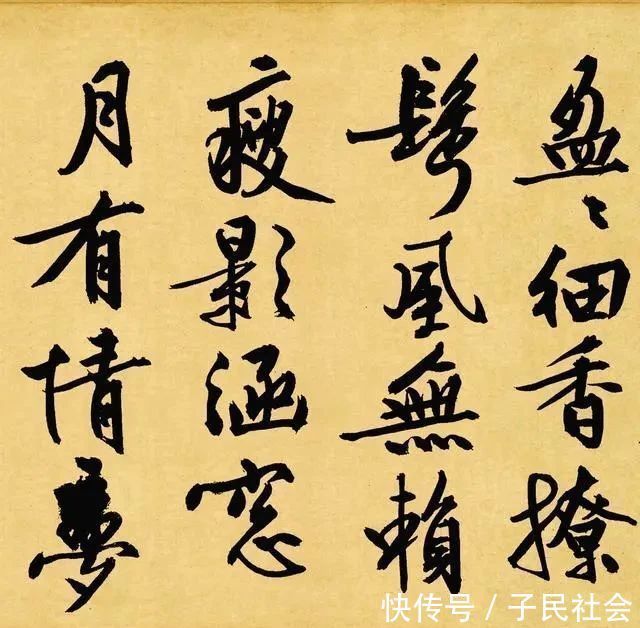 盈々細香撩
鬢風無賴
瘦影涵窓
月有情夢
快传号 / 子民社会